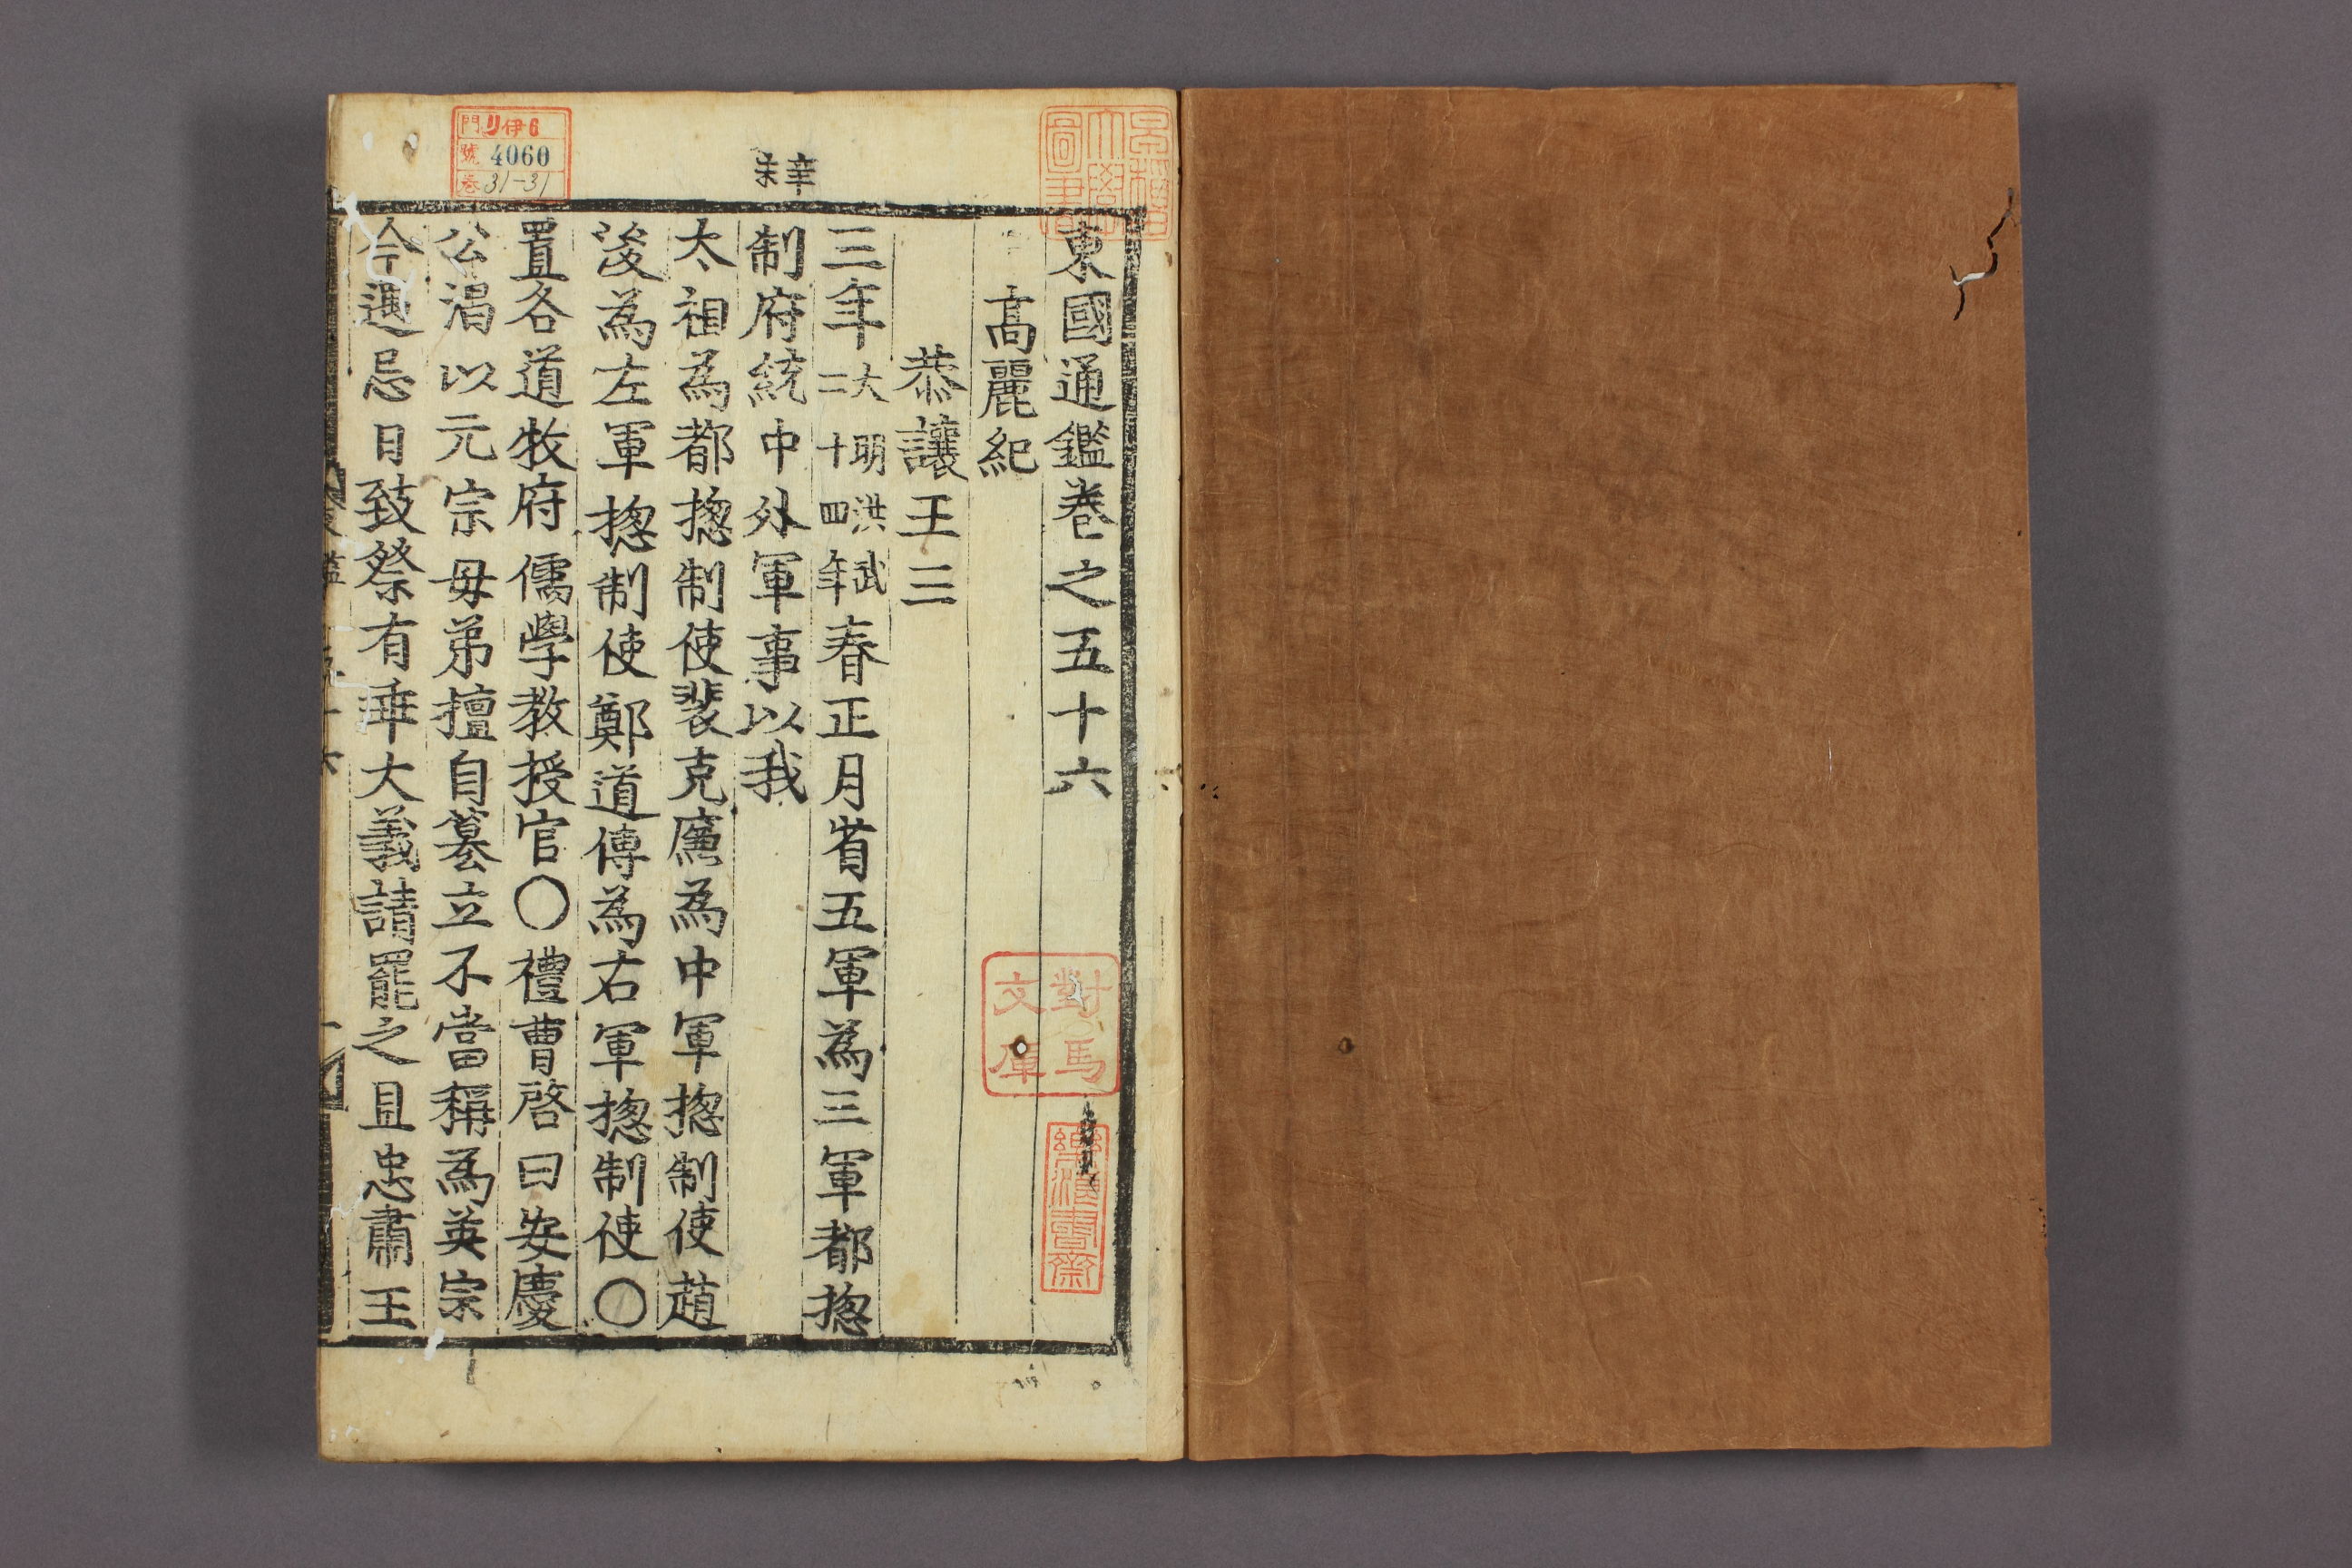 東國通鑑卷之五十六
高麗紀
恭讓王三
三年大明洪武二十四年春正月省五軍為三軍都摠
制府統中外軍事以我
太祖為都摠制使裴克廉為中軍摠制使趙
浚為左軍摠制使鄭道傳為右軍摠制使〇
置各道牧府儒學教授官〇禮曹啓曰安慶
公淐以元宗母弟擅自簒立不當稱為英宗
今遇忌日致祭有乖大義請罷之且忠肅王
辛未
門 リ伊6
號 4060
卷 31-31
對馬
文庫